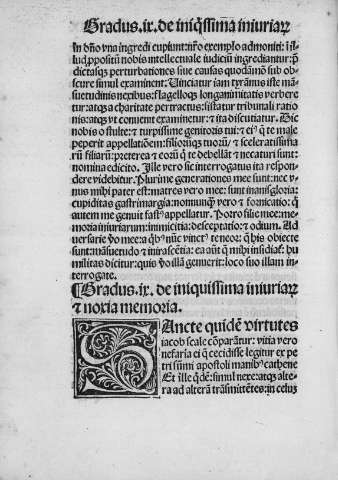 Gradus.ix.de iniq̃ssima iniuriaꝝ
In dño vna ingredi cupiunt:nr̃o exemplo admoniti: ĩ il-
lud ꝓpositũ nobis intellectuale iudiciũ ingrediantur:p̃
dictasqꝫ perturbationes siue causas quodãmõ sub ob-
scure simul examinent: Vinciatur iam tyrãnus iste mã-
suetudinis nexibus: flagelloqꝫ longanimitatis verbere
tur:atqꝫ a charitate pertractus: sistatur tribunali ratio
nis:atqꝫ vt cõuenit examinetur: ⁊ ita discutiatur. Dic
nobis o stulte: ⁊ turpissime genitoris tui: ⁊ eiꝰ q̃ te male
peperit appellatiõem: filiorũqꝫ tuorũ: ⁊ sceleratissima
rũ filiarũ: preterea ⁊ eorũ q̃ te debellãt ⁊ necaturi sunt:
nomina edicito. Ille vero sic interrogatus ita respon
dere videbitur. Plurime generationes mee sunt: nec v
nus mihi pater est: matres vero mee: sunt inanis gloria:
cupiditas gastrimargia: nonnunq̃ vero ⁊ fornicatio: q̃
autem me genuit fastꝰ appellatur. Porro filie mee: me-
moria iniuriarum: inimicitia: desceptatio: ⁊ odium. Ad
uersarie ṽo mee: a qbꝰ nũc vinctꝰ teneor: q̃ his obiecte
sunt: mãsuetudo ⁊ inirascẽtia: ea aũt q̃ mihi insidiaſ: hu
militas dicitur: quis ṽo illã genuerit: loco suo illam in-
terrogate.
¶Gradus.ix. de iniquissima iniuriaꝝ
⁊ noxia memoria.
SAncte quidẽ virtutes
iacob scale cõparãtur: vitia vero
nefaria ei q̃ cecidisse legitur ex pe
tri sũmi apostoli manibꝰ cathene
Et ille q̃dẽ: simul nexe: atqꝫ alte-
ra ad alterã trãsmittẽtes: in celuꝫ